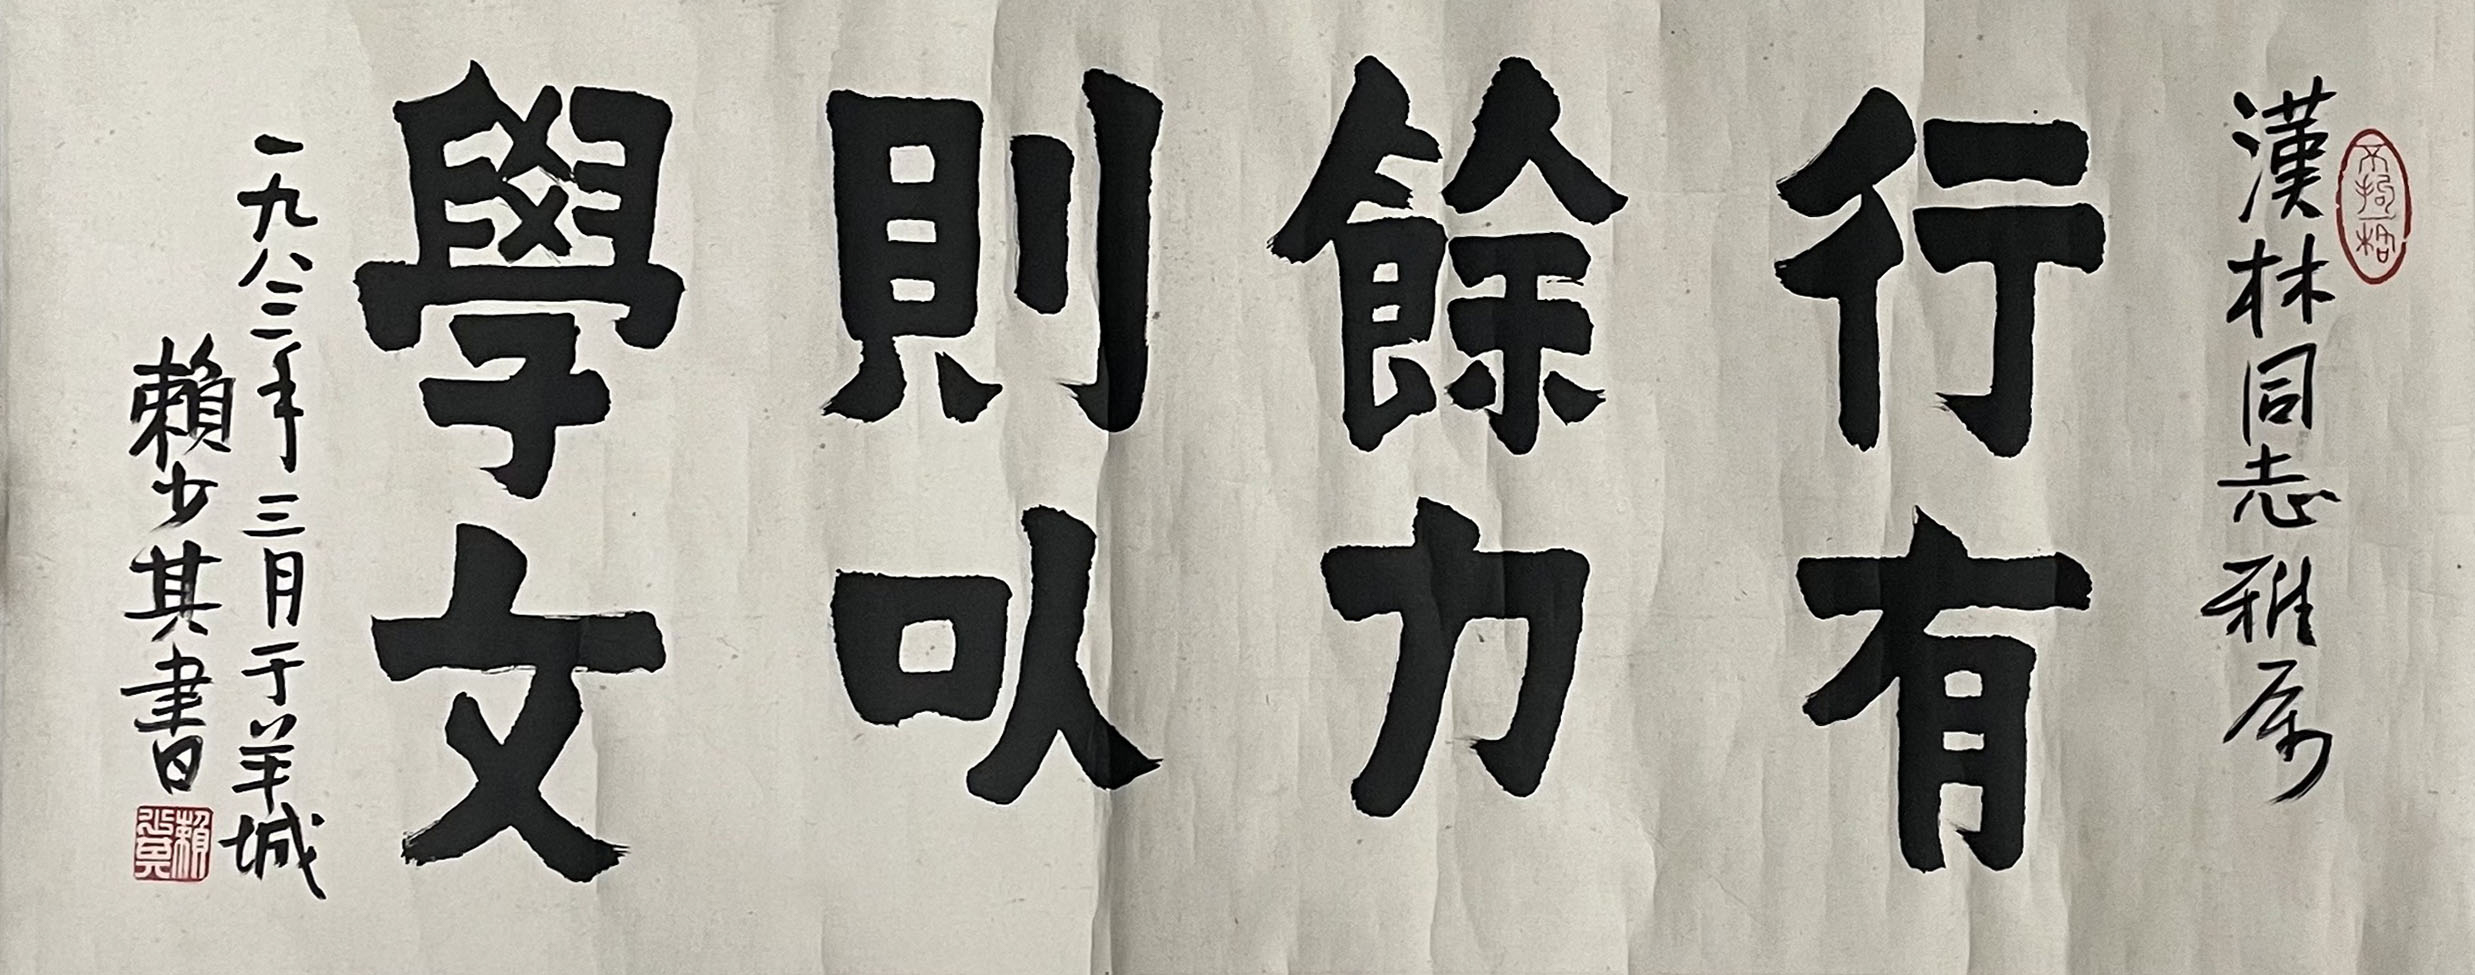 漢林同志雅属
不拘一格
行有
餘力
則以
學文
一九八二年三月于羊城
賴少其書
賴少其